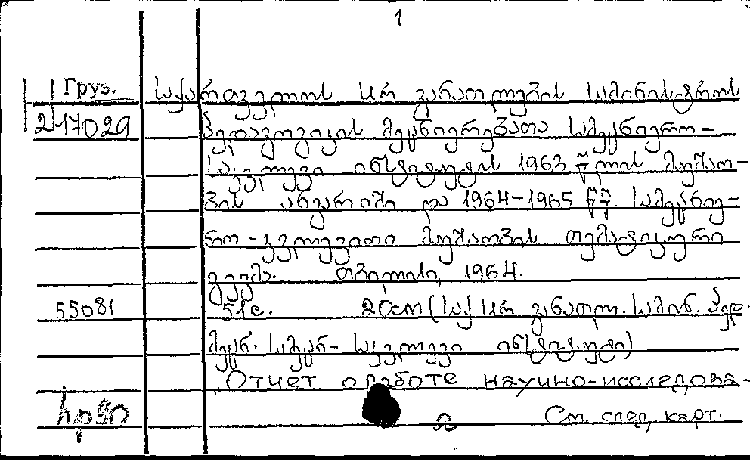 1
Груз. საქართველოს სსრ განათლების სამინისტროს
2-17029 პედაგოგიკის მეცნიერებათა სამეცნიერო-
საკვლევი ინსტიტუტის 1963 წლის მუშაო-
ბის ანგარიში და 1964-1965 წწ. სამეცნიე-
რო-კვლევითი მუშაობის თემატიკური
გეგმა. თბილისი, 1964.
55081 51с. 20см (საქ სსრ განათლ. სამინ. პედ.
მეცნ. სამეცნ- საკვლევი ინსტიტუტი)
Отчет о работе научно-исследова-
См. след. карт.